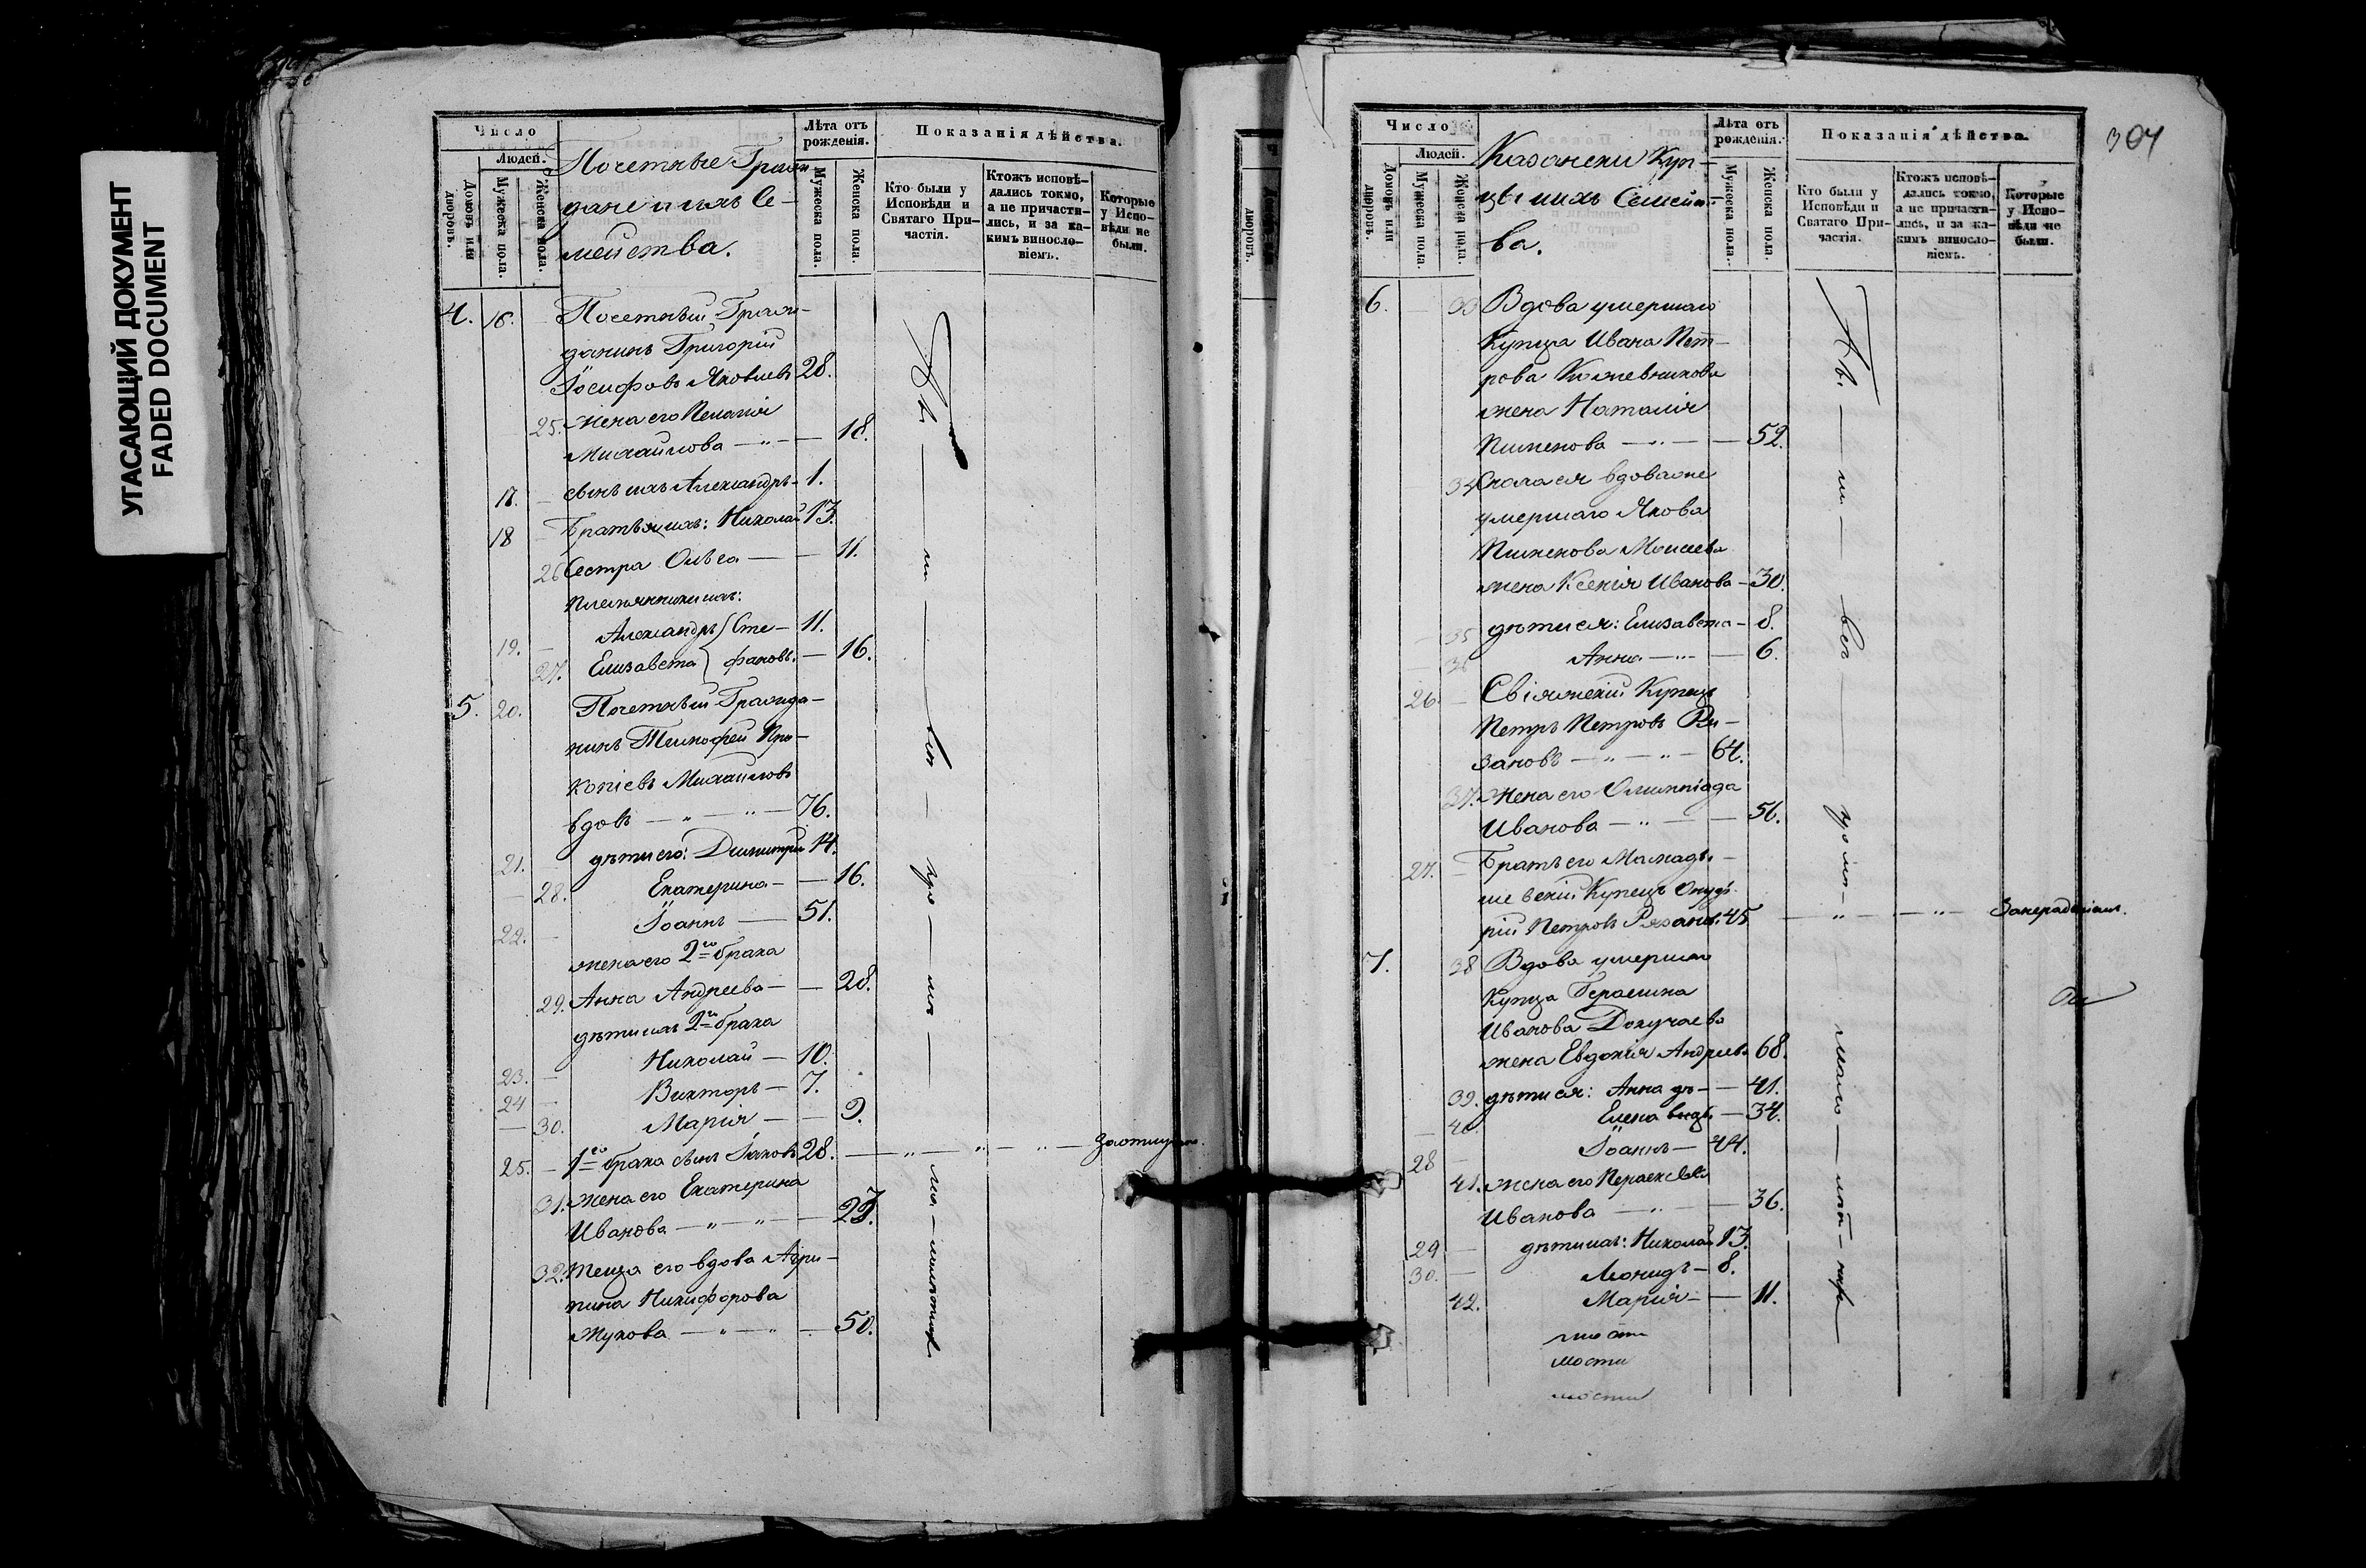 УГАСАЮЩИЙ ДОКУМЕНТ
FADED DOCUMENT
Число
Людей.
Домовъ или дворовъ.
Мужеска пола.
Женска пола.
Почетные Граж-
дане и ихъ Се-
мейства.
Лѣта отъ рожденія.
Мужеска пола.
Женска пола.
Показанія дѣйства.
Кто были у Исповѣди и Святаго Причастія.
Ктожъ исповѣдались токмо, а не причастились, и за какимъ винословіемъ.
Которые у Исповѣди не были.
4. 16. Почетный Граж-
данинъ Григорій
Іосифовъ Яковлевъ 28.
25. жена его Пелагія
Михайлова — 18.
17. сынъ ихъ Александръ — 1.
18 Братья ихъ: Николай 13.
26 Сестра Ольга — 11.
Племянники ихъ:
19. Александръ Сте- 11.
27. Елизавета фановы. — 16.
5. 20. Почетный Гражда-
нинъ Тимофей Про-
копіевъ Михайловъ
вдовъ — 76.
21. дѣти его: Димитрій 14.
28. Екатерина — 16.
22. Іоаннъ — 51.
жена его 2го брака
29. Анна Андреева — 28.
дѣти ихъ 2го брака
23. Николай — 10.
24 Викторъ — 7.
30. Марія — 9.
25. 1го брака сынъ Іаковъ 28. — за отлуч.
31. жена его Екатерина
Иванова — 23.
32. теща его вдова Агри-
пина Никифорова
Жукова — 50.
304
Число
Людей.
Домовъ или дворовъ.
Мужеска пола.
Женска пола.
Казански Куп-
цы и ихъ Семейст-
ва.
Лѣта отъ рожденія.
Мужеска пола.
Женска пола.
Показанія дѣйства.
Кто были у Исповѣди и Святаго Причастія.
Ктожъ исповѣдались токмо, а не причастились, и за какимъ винословіемъ.
Которые у Исповѣди не были.
6. 33 Вдова умершаго
Купца Ивана Пет-
рова Кожевникова
жена Наталія
Пименова — 52.
34 Сноха ея вдова же
умершаго Якова
Пименова Моисеева
жена Ксенія Иванова — 30.
35 дѣти ея: Елизавета — 8.
36 Анна — 6.
26. Свіяжскій Купецъ
Петръ Петровъ Ря-
зановъ — 64.
37. жена его Олимпіада
Иванова — 56.
27. Братъ его Мамады-
шевскій Купецъ
Петровъ Рязанов. 45 — За нерадѣніемъ.
7. 38 Вдова умершаго
Купца Герасима
Иванова Докучаева
жена Евдокія Андреева 68.
39. дѣти ея: Анна дѣ- — 41.
40. Елена — 34.
28 Іоаннъ — 44.
41. жена его Параскева
Иванова — 36.
29 дѣти ихъ: Николай 13.
30. Леонидъ — 8.
42. Марія — 11.
мости